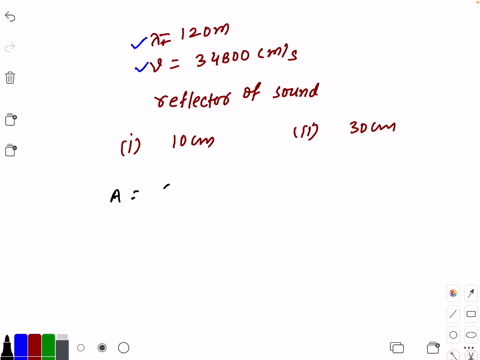 λ = 120m
v = 34800 cm/s
reflector of sound
(i) 10cm (ii) 30cm
A =